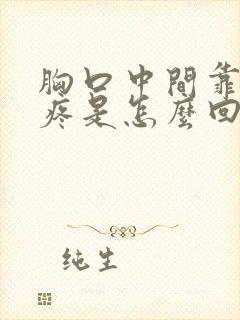 胸口中間靠
疼是怎麼回
纯生